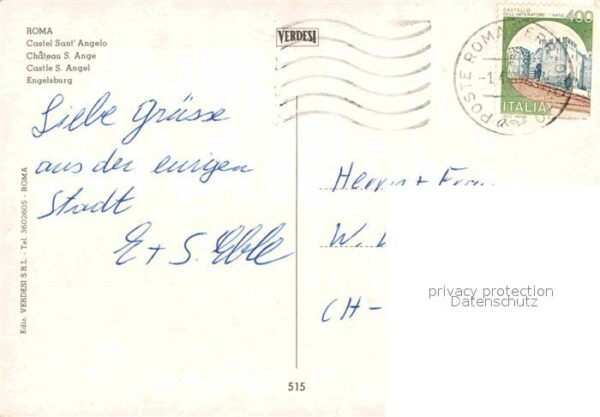 ROMA
Castel Sant' Angelo
Château S. Ange
Castle S. Angel
Engelsburg
VERDESI
CASTELLO
DELL'IMPERATORE - PRATO
400
ITALIA
POSTE ROMA
Liebe Grüsse
aus der ewigen
Stadt
E + S. Eble
Herrn + Frau
W.
CH-
privacy protection
Datenschutz
Ediz. VERDESI S.R.L. - Tel. 3602605 - ROMA
515